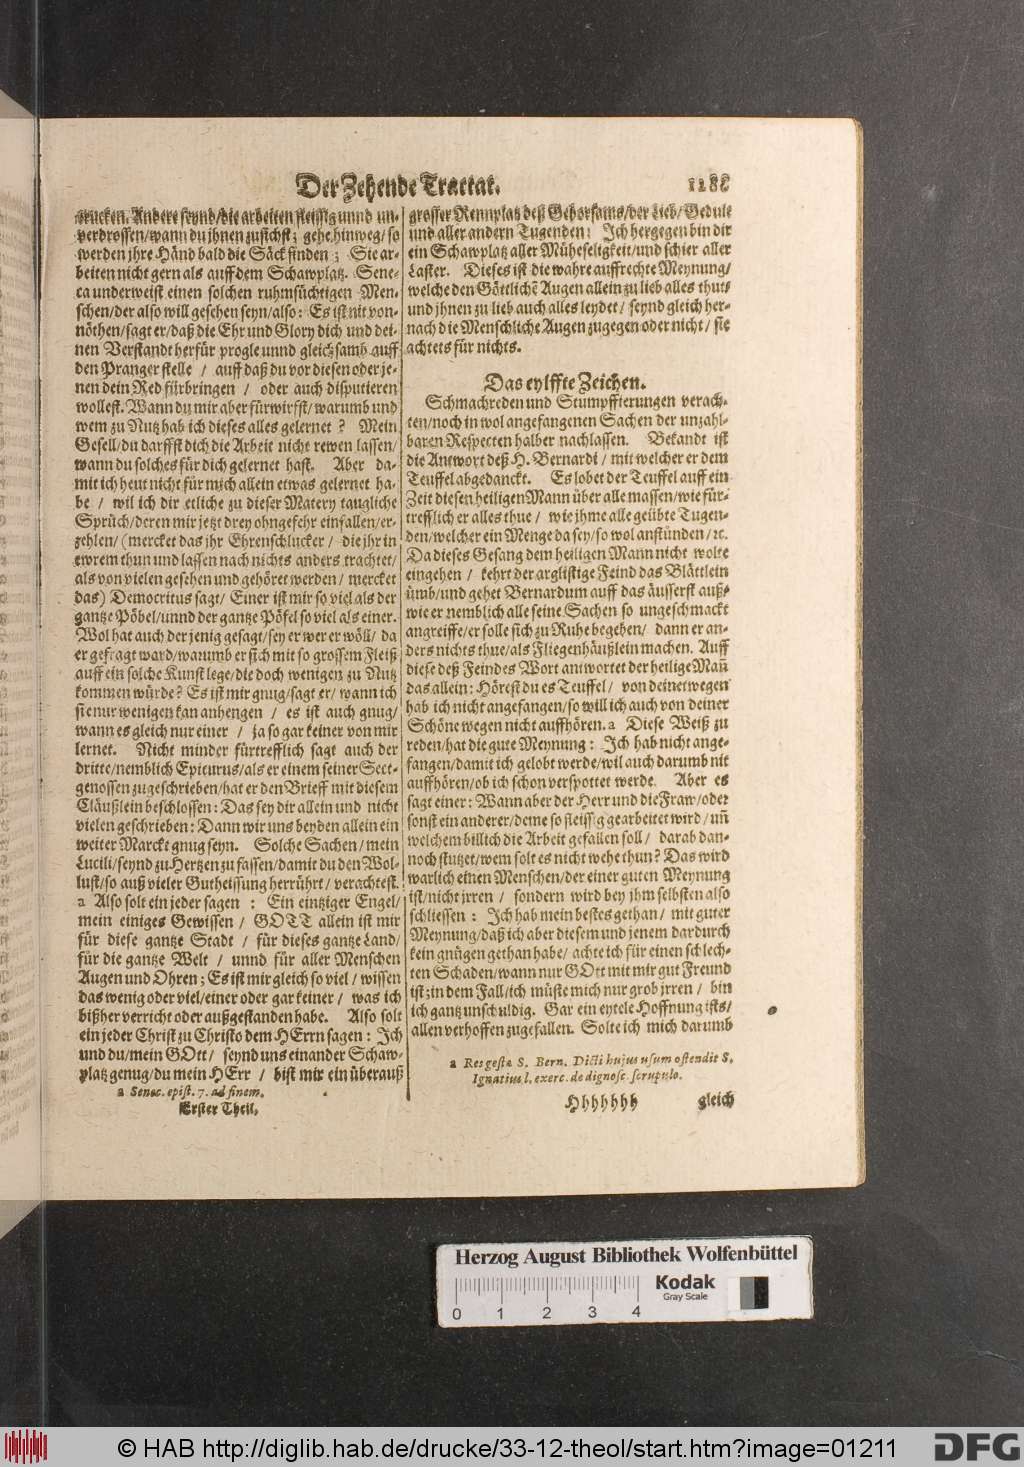 Der Zehende Tractat.
1185
trucken. Andere seynd/die arbeiten fleissig unnd un-
verdrossen/wann du jhnen zusichst; gehe hinweg/so
werden jhre Händ bald die Säck finden; Sie ar-
beiten nicht gern als auff dem Schawplatz. Sene-
ca underweist einen solchen ruhmsüchtigen Men-
schen/der also will gesehen seyn/also: Es ist nit von-
nöthen/sagt er/daß die Ehr und Glory dich und dei-
nen Verstandt herfür progle unnd gleichsamb auff
den Pranger stelle / auff daß du vor diesen oder je-
nen dein Red fürbringen / oder auch disputieren
wollest. Wann du mir aber fürwirffst/warumb und
wem zu Nutz hab ich dieses alles gelernet? Mein
Gesell/du darffst dich die Arbeit nicht rewen lassen/
wann du solches für dich gelernet hast. Aber da-
mit ich heut nicht für mich allein etwas gelernet ha-
be / wil ich dir etliche zu dieser Matery taugliche
Sprüch/deren mir jetzt drey ohngefehr einfallen/er-
zehlen/(mercket das jhr Ehrenschlucker / die jhr in
ewrem thun und lassen nach nichts anders trachtet/
als von vielen gesehen und gehöret werden / mercket
das) Democritus sagt/ Einer ist mir so viel als der
gantze Pöbel/unnd der gantze Pöfel so viel als einer.
Wol hat auch der jenig gesagt/sey er wer er wöll/ da
er gefragt ward/warumb er sich mit so grossem Fleiß
auff ein solche Kunst lege/die doch wenigen zu Nutz
kommen würde? Es ist mir gnug/sagt er/ wann ich
sie nur wenigen kan anhengen / es ist auch gnug/
wann es gleich nur einer / ja so gar keiner von mir
lernet. Nicht minder fürtrefflich sagt auch der
dritte/nemblich Epicurus/als er einem seiner Sect-
genossen zugeschrieben/hat er den Brieff mit diesem
Cläußlein beschlossen: Das sey dir allein und nicht
vielen geschrieben: Dann wir uns beyden allein ein
weiter Marckt gnug seyn. Solche Sachen/mein
Lucili/seynd zu Hertzen zu fassen/damit du den Wol-
lust/so auß vieler Gutheissung herrührt/verachtest.
a Also solt ein jeder sagen : Ein eintziger Engel/
mein einiges Gewissen / GOTT allein ist mir
für diese gantze Stadt / für dieses gantze Land/
für die gantze Welt / unnd für aller Menschen
Augen und Ohren; Es ist mir gleich so viel / wissen
das wenig oder viel/einer oder gar keiner / was ich
bißher verricht oder außgestanden habe. Also solt
ein jeder Christ zu Christo dem HErrn sagen: Ich
und du/mein GOtt/ seynd uns einander Schaw-
platz genug/du mein HErr / bist mir ein überauß
a Senec. epist. 7. ad finem.
Erster Theil.
grosser Rennplatz deß Gehorsams/der Lieb/Gedult
und aller andern Tugenden: Ich hergegen bin dir
ein Schawplatz aller Müheseligkeit/und schier aller
Laster. Dieses ist die wahre auffrechte Meynung/
welche den Göttlichē Augen allein zu lieb alles thut/
und jhnen zu lieb auch alles leydet/ seynd gleich her-
nach die Menschliche Augen zugegen oder nicht/ sie
achtets für nichts.
Das eylffte Zeichen.
Schmachreden und Stumpffierungen verach-
ten/noch in wol angefangenen Sachen der unzahl-
baren Respecten halber nachlassen. Bekandt ist
die Antwort deß H. Bernardi / mit welcher er dem
Teuffel abgedanckt. Es lobet der Teuffel auff ein
Zeit diesen heiligen Mann über alle massen/wie für-
trefflich er alles thue / wie jhme alle geübte Tugen-
den/welcher ein Menge da sey/so wol anstünden/ ꝛc.
Da dieses Gesang dem heiligen Mann nicht wolte
eingehen / kehrt der arglistige Feind das Blättlein
ümb/und gehet Bernardum auff das äusserst auß/
wie er nemblich alle seine Sachen so ungeschmackt
angreiffe/er solle sich zu Ruhe begeben/ dann er an-
ders nichts thue/als Fliegenhäußlein machen. Auff
diese deß Feindes Wort antwortet der heilige Mañ
das allein: Hörest du es Teuffel / von deinetwegen
hab ich nicht angefangen/so will ich auch von deiner
Schöne wegen nicht auffhören. a Diese Weiß zu
reden/hat die gute Meynung: Ich hab nicht ange-
fangen/damit ich gelobt werde/wil auch darumb nit
auffhören/ob ich schon verspottet werde. Aber es
sagt einer: Wann aber der Herr und die Fraw/oder
sonst ein anderer/deme so fleissig gearbeitet wird/ uñ
welchem billich die Arbeit gefallen soll / darab dan-
noch stutzet/wem solt es nicht wehe thun? Das wird
warlich einen Menschen/der einer guten Meynung
ist/nicht jrren / sondern wird bey jhm selbsten also
schliessen : Ich hab mein bestes gethan / mit guter
Meynung/daß ich aber diesem und jenem dardurch
kein gnügen gethan habe/ achte ich für einen schlech-
ten Schaden/wann nur GOtt mit mir gut Freund
ist; in dem Fall/ich müste mich nur grob jrren / bin
ich gantz unschuldig. Gar ein eytele Hoffnung ists/
allen verhoffen zugefallen. Solte ich mich darumb
a Res gestæ S. Bern. Dicti hujus usum ostendit S.
Ignatius l. exerc. de dignosc. scrupulo.
Hhhhhhh
gleich
Herzog August Bibliothek Wolfenbüttel
0 1 2 3 4
Kodak
Gray Scale
© HAB http://diglib.hab.de/drucke/33-12-theol/start.htm?image=01211
DFG